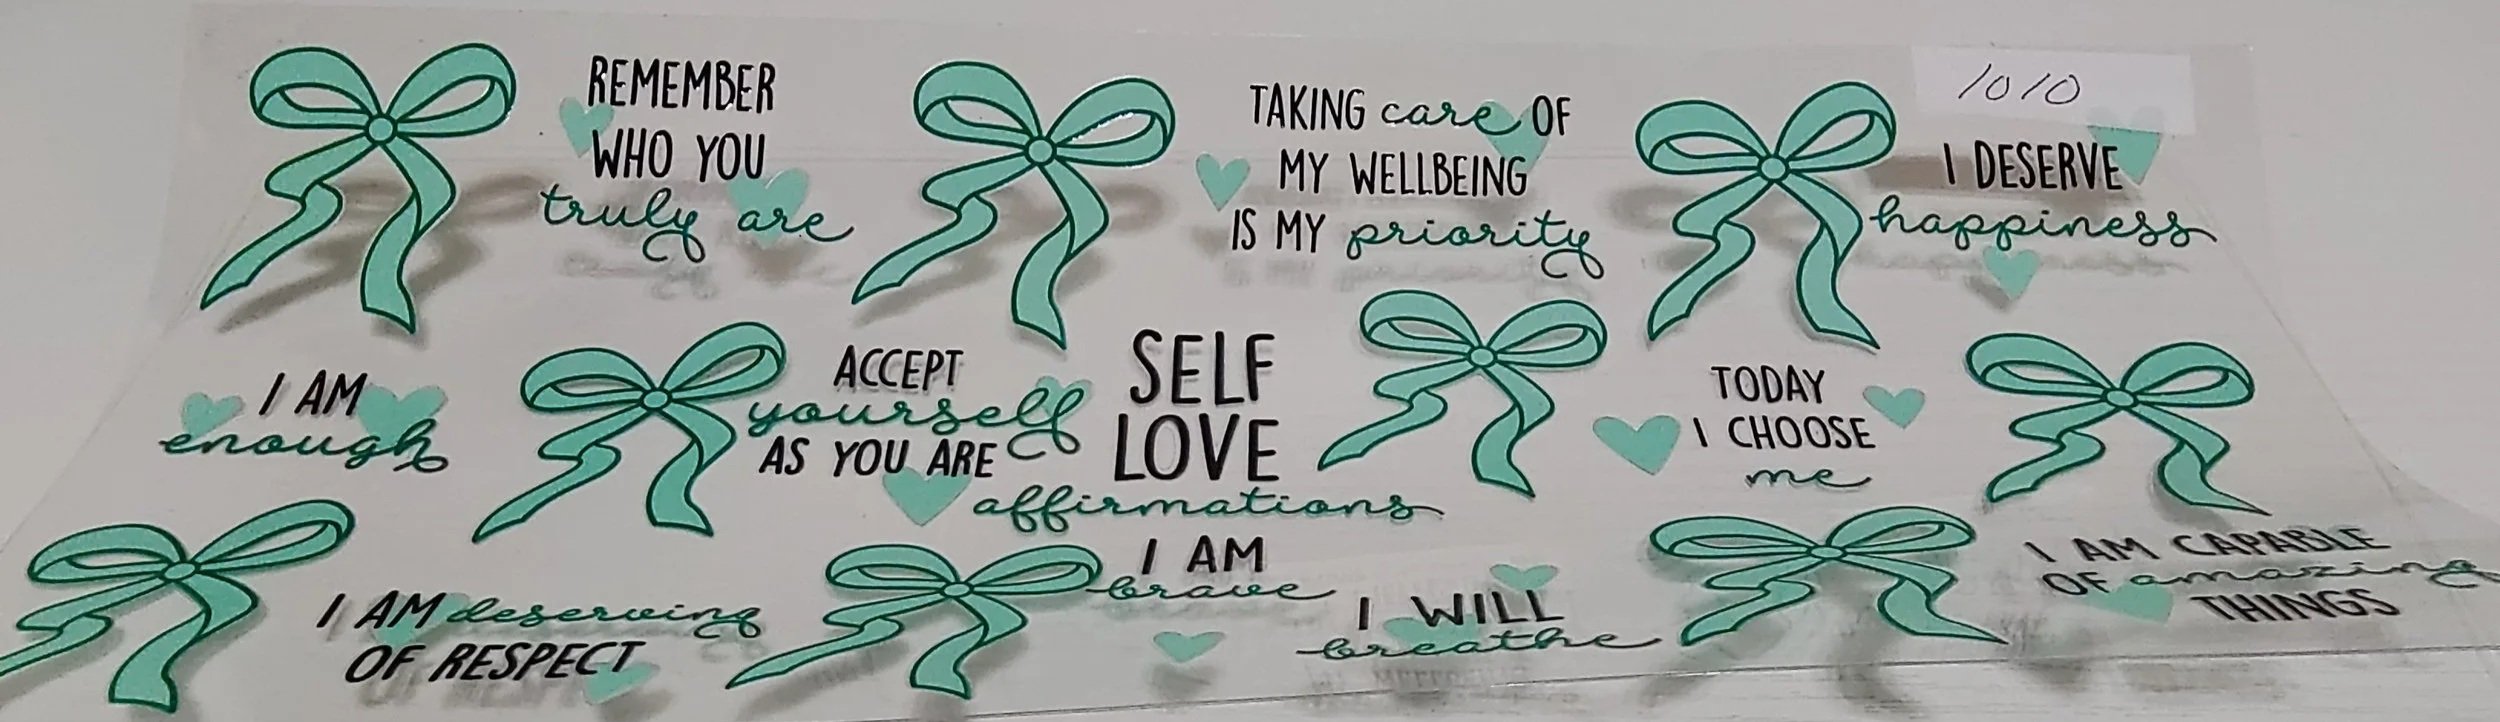 REMEMBER
WHO YOU
truly are
TAKING care OF
MY WELLBEING
IS MY priority
1010
I DESERVE
happiness
I AM
enough
ACCEPT
yourself
AS YOU ARE
SELF
LOVE
affirmations
TODAY
I CHOOSE
me
I AM deserving
OF RESPECT
I AM
brave
I WILL
breathe
I AM CAPABLE
OF amazing
THINGS